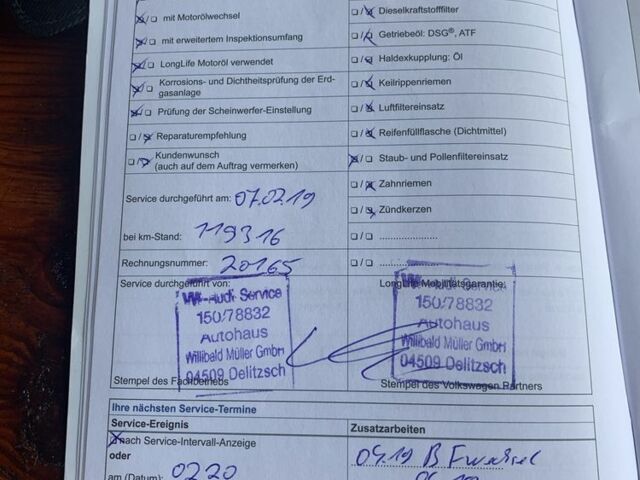 mit Motorölwechsel
Dieselkraftstofffilter
mit erweitertem Inspektionsumfang
Getriebeöl: DSG®, ATF
LongLife Motoröl verwendet
Haldexkupplung: Öl
Korrosions- und Dichtheitsprüfung der Erd-
gasanlage
Keilrippenriemen
Prüfung der Scheinwerfer-Einstellung
Luftfiltereinsatz
Reparaturempfehlung
Reifenfüllflasche (Dichtmittel)
Kundenwunsch
(auch auf dem Auftrag vermerken)
Staub- und Pollenfiltereinsatz
Zahnriemen
Service durchgeführt am: 07.02.19
Zündkerzen
bei km-Stand: 119316
Rechnungsnummer: 20165
Service durchgeführt von:
LongLife Mobilitätsgarantie:
VW-Audi Service
150/78832
Autohaus
Willibald Müller GmbH
04509 Delitzsch
Stempel des Fachbetriebs
VW-Audi Service
150/78832
Autohaus
Willibald Müller GmbH
04509 Delitzsch
Stempel des Volkswagen Partners
Ihre nächsten Service-Termine
Service-Ereignis
Zusatzarbeiten
nach Service-Intervall-Anzeige
oder
am (Datum): 0220
04.19 B Fwechsel